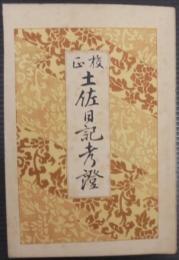 校正
土佐日記考證